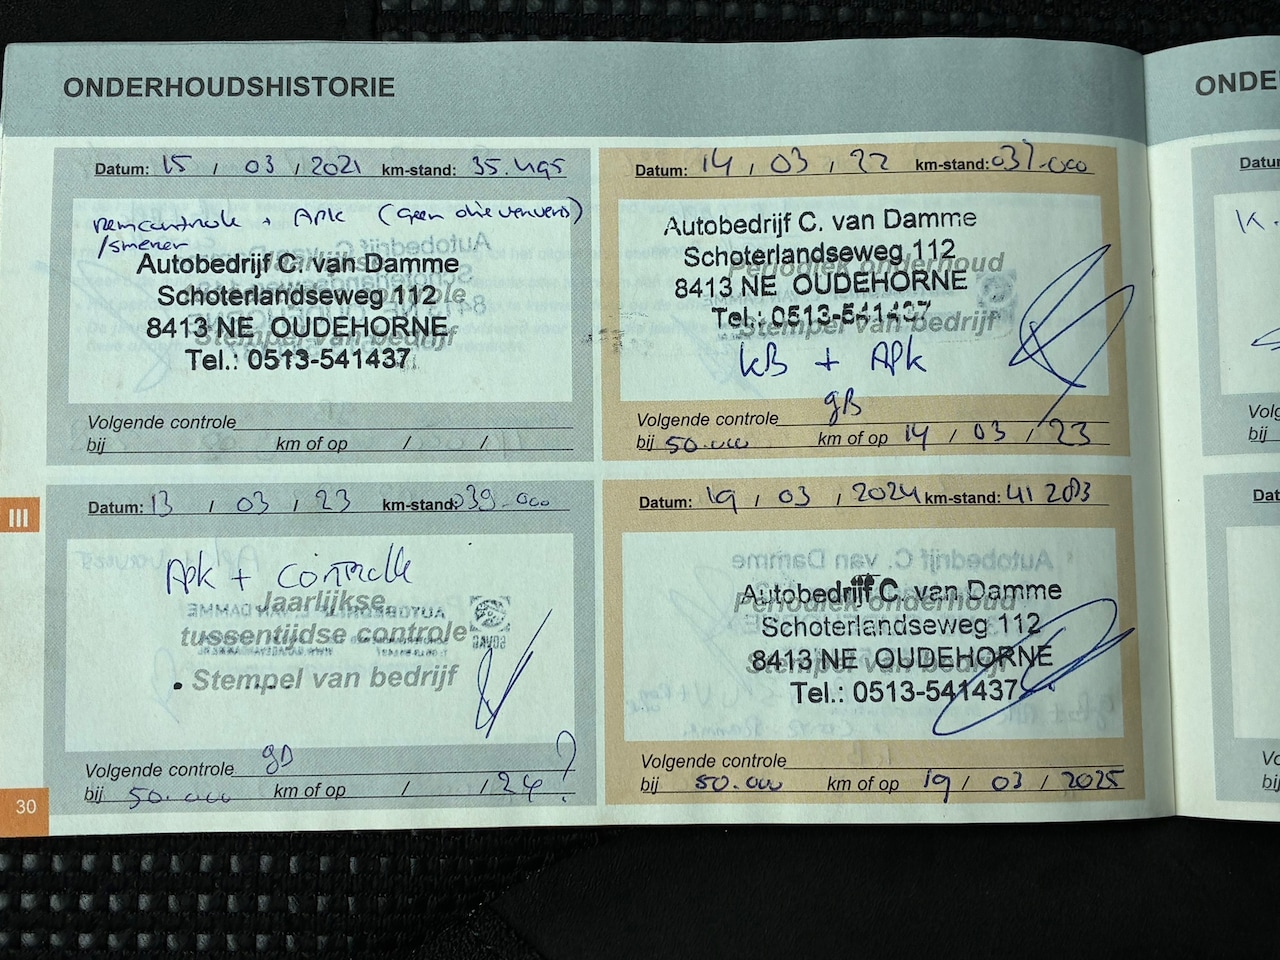 ONDERHOUDSHISTORIE
Datum: 15 / 03 / 2021 km-stand: 35.495
remcontrole + APK (geen olieverversing)
/smeren
Autobedrijf C. van Damme
Schoterlandseweg 112
8413 NE OUDEHORNE
Tel.: 0513-541437
Stempel van bedrijf
Volgende controle
bij km of op / /
Datum: 14 / 03 / 22 km-stand: 037.000
Autobedrijf C. van Damme
Schoterlandseweg 112
Periodiek onderhoud
8413 NE OUDEHORNE
Tel.: 0513-541437
Stempel van bedrijf
KB + APK
Volgende controle gB
bij 50.000 km of op 14 / 03 / 23
Datum: 13 / 03 / 23 km-stand: 039.000
APK + Controlle
Jaarlijkse
tussentijdse controle
Stempel van bedrijf
Volgende controle gB
bij 50.000 km of op / / 24 ?
Datum: 19 / 03 / 2024 km-stand: 41 283
Autobedrijf C. van Damme
Periodiek onderhoud
Schoterlandseweg 112
8413 NE OUDEHORNE
Stempel van bedrijf
Tel.: 0513-541437
Volgende controle
bij 50.000 km of op 19 / 03 / 2025
III
30
ONDE
Datu
K.
Volg
bij
Dat
Vo
bij